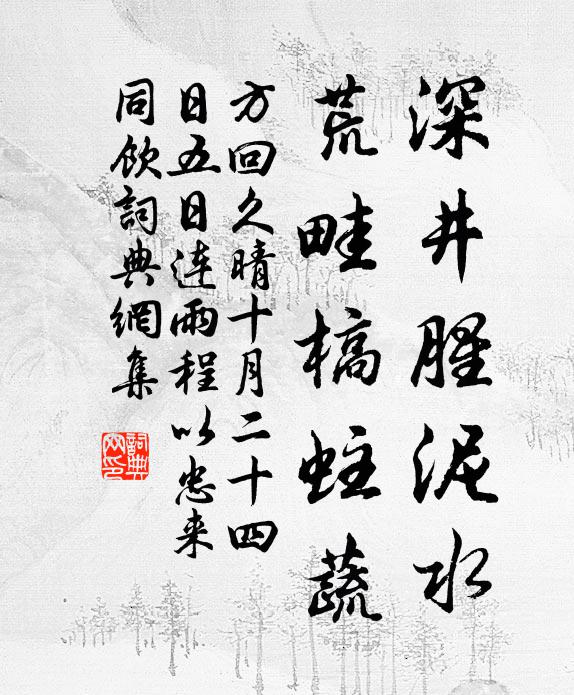 深井腥泥水
荒畦槁蛀蔬
方回久晴十月二十四
日五日连雨程以忠来
同饮詞典網集
詞典
网印